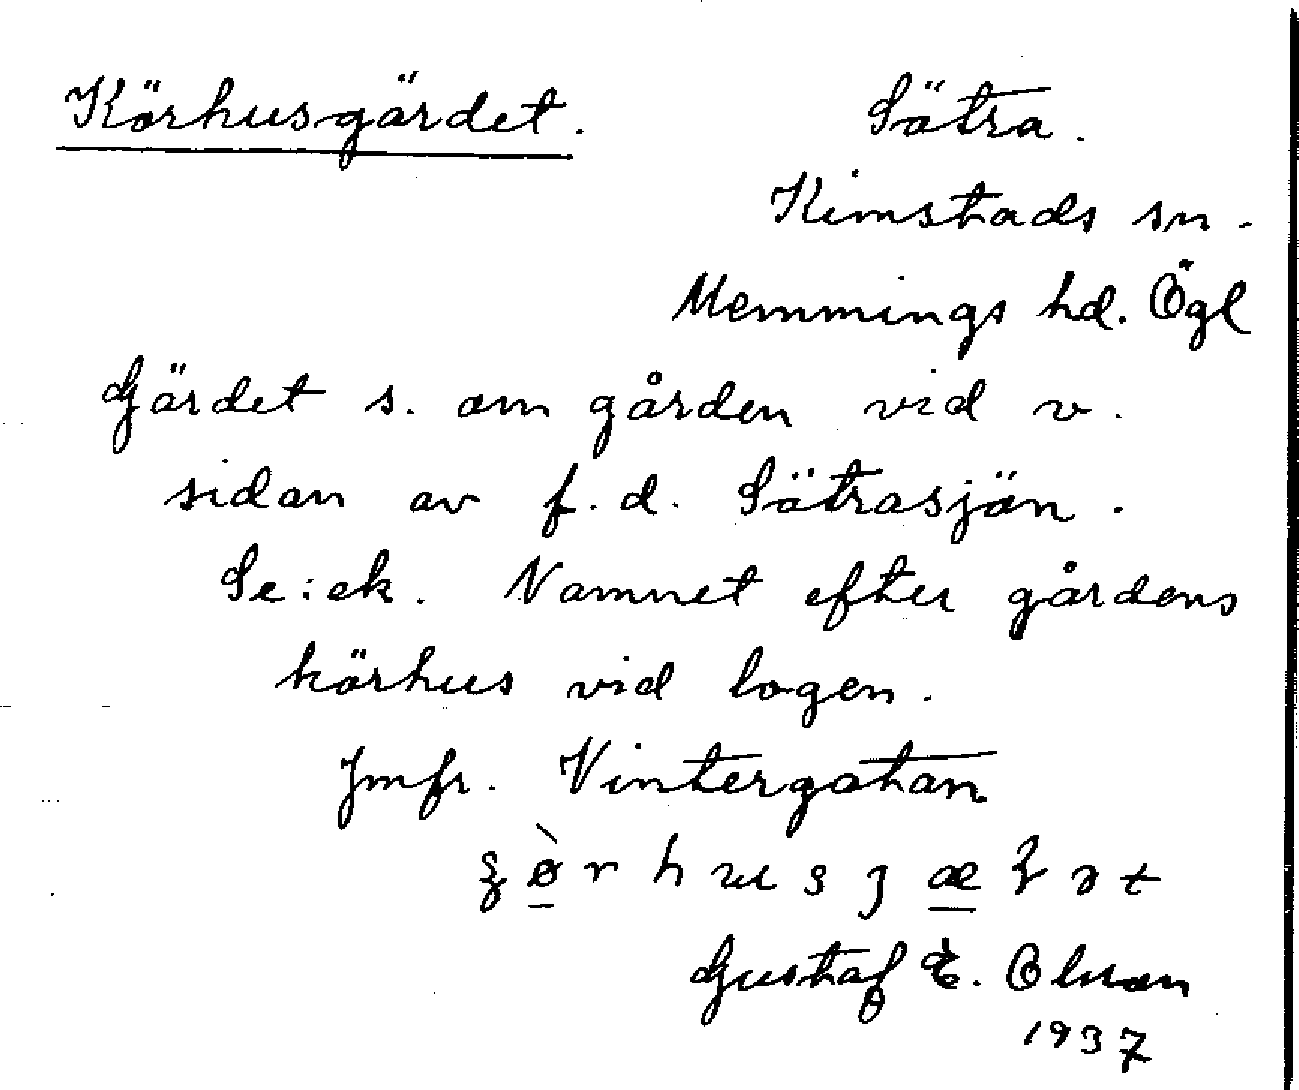 Körhusgärdet. Sätra.
Kimstads sn.
Memmings hd. Ögl
Gärdet s. om gården vid v.
sidan av f.d. Sätrasjön.
Se: ek. Namnet efter gårdens
körhus vid logen.
Jmfr. Vintergatan
Gustaf E. Olsson
1937